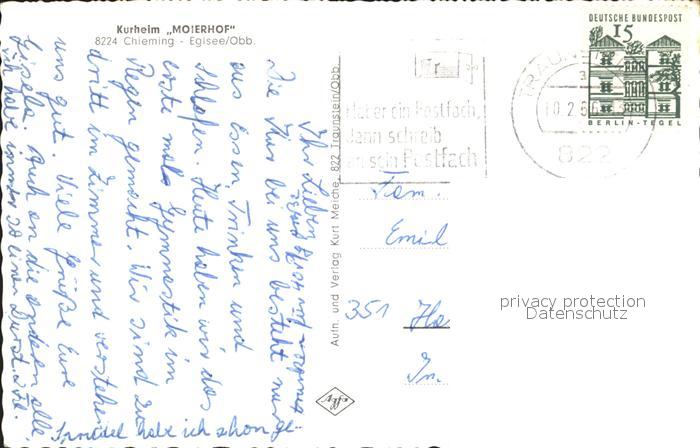 Kurheim „MOIERHOF"
8224 Chieming - Egisee/Obb.
Ihr Lieben
die Kur bei uns besteht nur
aus Essen, Trinken und
schlafen. Heute haben wir das
erste mal Gymnastik im
Regen gemacht. Wir sind zu
dritt im Zimmer und verstehen
uns gut. Viele Grüße Eure
Gisela. Auch an die andern alle
Strudel habe ich schon ge-
Aufn. und Verlag Kurt Meiche, 822 Traunstein/Obb.
DEUTSCHE BUNDESPOST
15
BERLIN-TEGEL
822
Hat er ein Postfach,
dann schreib
an sein Postfach
Fam.
Emil
351
privacy protection
Datenschutz
Agfa